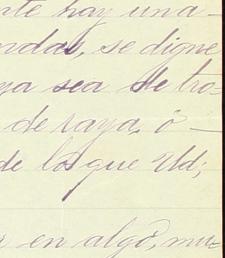 nte hay una-
ndas, se digne
ya sea de tra-
de raya, ó-
de los que Ud;
r en algo, mu-